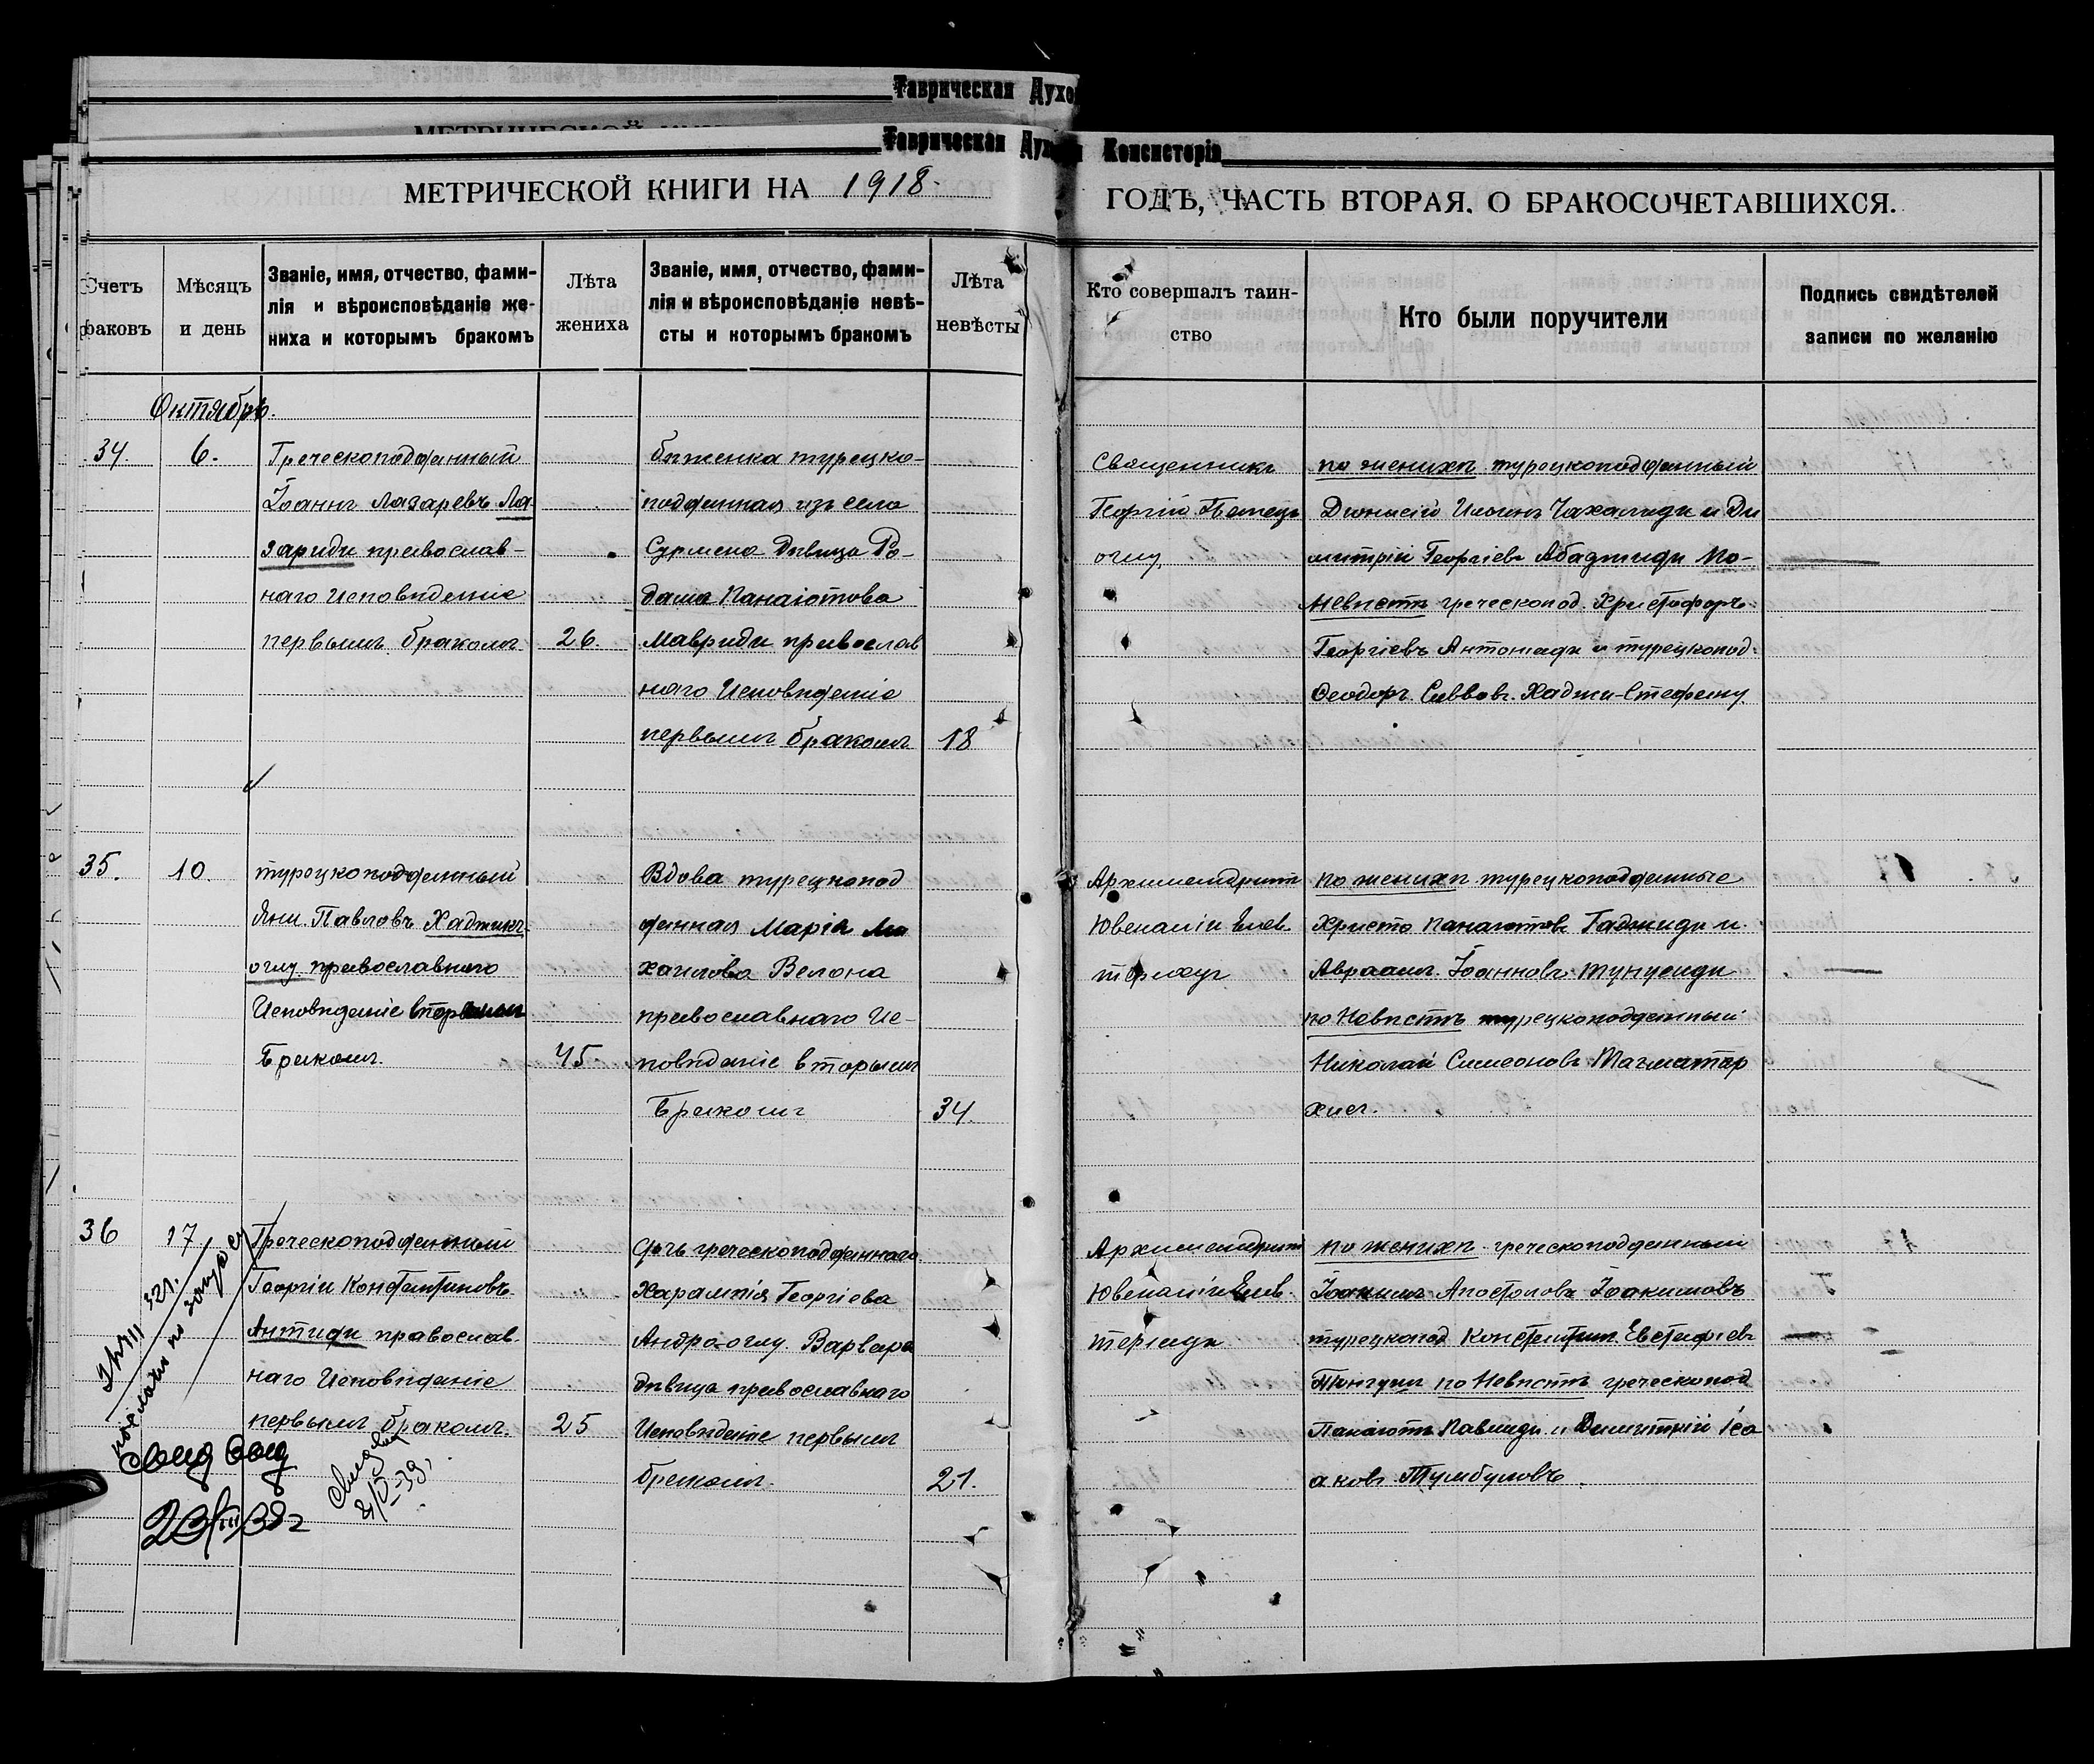 Таврическая Духо
Таврическая Духовная Консисторія
МЕТРИЧЕСКОЙ КНИГИ НА 1918. ГОДЪ, ЧАСТЬ ВТОРАЯ, О БРАКОСОЧЕТАВШИХСЯ.
Счетъ браковъ
Мѣсяцъ и день
Званіе, имя, отчество, фами-
лія и вѣроисповѣданіе же-
ниха и которымъ бракомъ
Лѣта
жениха
Званіе, имя, отчество, фами-
лія и вѣроисповѣданіе невѣ-
сты и которымъ бракомъ
Лѣта
невѣсты
Кто совершалъ таин-
ство
Кто были поручители
Подпись свидѣтелей
записи по желанію
Октябрь.
34. 6.
Греческоподданный
Іоаннъ Лазаревъ Ла-
зариди православ-
наго Исповѣданіе
первымъ бракомъ. 26.
бѣженка турецко-
подданная изъ села
Сурмена дѣвица Ро-
даша Панаіотова
Мавриди православ
наго Исповѣданіе
первымъ бракомъ 18
Священникъ
Георгій
оглу.
по женихѣ турецкоподданный
Діонисій Ильинъ Чахалиди и Ди
митрій Георгіевъ Абаджиди по-
Невѣстѣ греческопод. Христофоръ
Георгіевъ Антоніади и турецкопод.
Ѳеодоръ Саввовъ Хаджи-Стефану.
35. 10.
турецкоподданный
Яни Павловъ Хаджикъ-
оглу православнаго
Исповѣданіе вторымъ
Бракомъ. 45.
Вдова турецкопод
данная Марія Ми
хаилова Велона
православнаго Ис-
повѣданіе вторымъ
Бракомъ 34.
Архимандритъ
Ювеналій Елев-
по женихѣ турецкоподданные
Христо Панаіотовъ Гаджиди и
Авраамъ Іоанновъ Тунусиди
по Невѣстѣ турецкоподданный
Николай Симеоновъ
36 17.
Греческоподданный
Георгій Константиновъ
Антиди православ-
наго Исповѣданіе
первымъ бракомъ. 25
Дочь греческоподданнаго
Харампія Георгіева
Андра-оглу Варвара
дѣвица православнаго
Исповѣданіе первымъ
бракомъ. 21.
Архимандритъ
Ювеналій Елев-
теріади
по женихѣ греческоподданный
Іоакимъ Апостоловъ Іоакимовъ
турецкопод Константинъ Евстафіевъ
по Невѣстѣ греческопод
Панаіотъ Павлиди и Димитрій Іса
аковъ Тумбуловъ.
по запросу
23/III 38г